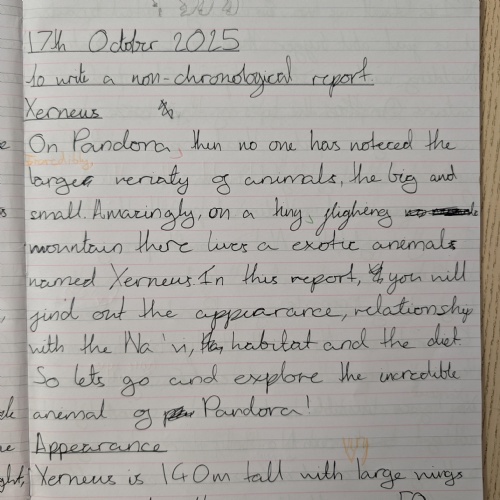 17th October 2025
to write a non-chronological report.
Xerneus
On Pandora, then no one has notered the
incredibly
large veriaty of animals, the big and
small. Amazingly, on a tiny, fligheng
mountain there lives a exotic anemals
named Xerneus. In this report, you will
find out the appearance, relationship
with the Na'vi, habitat and the diet.
So lets go and explore the incredible
anemal of Pandora!
Appearance
Xerneus is 140m tall with large wings